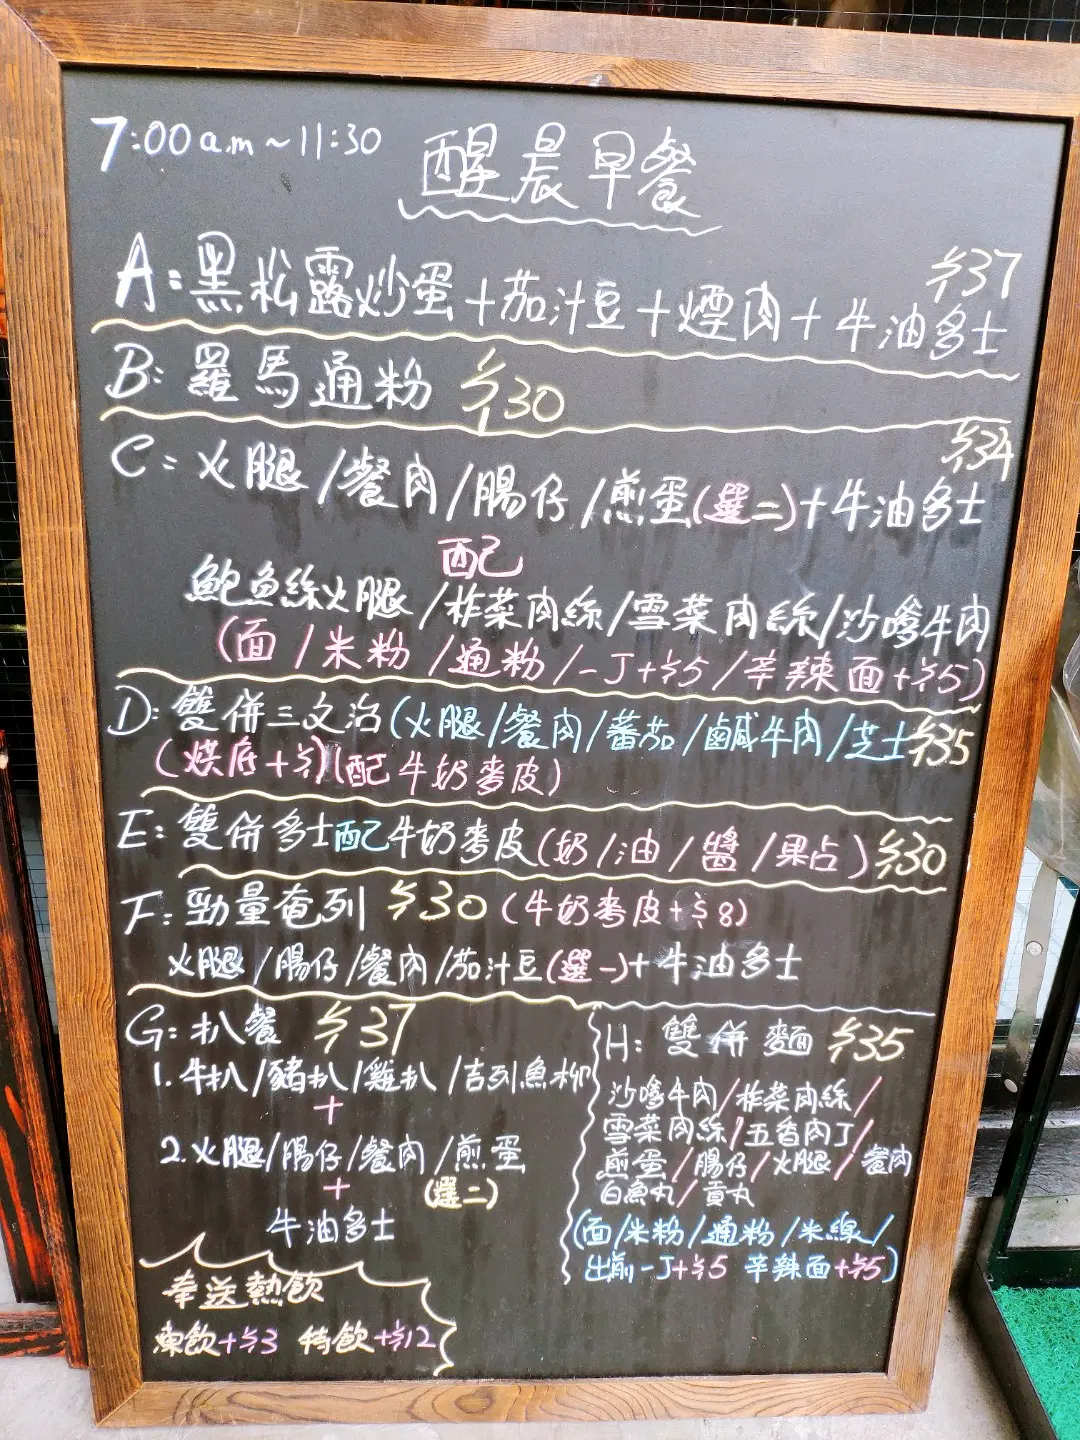 7:00a.m~11:30 醒晨早餐
$37
A:黑松露炒蛋+茄汁豆+煙肉+牛油多士
B:羅馬通粉 $30
$34
C:火腿/餐肉/腸仔/煎蛋(選二)+牛油多士
配
鮑魚絲火腿/榨菜肉絲/雪菜肉絲/沙嗲牛肉
(面/米粉/通粉/一丁+$5/辛辣面+$5)
D:雙併三文治(火腿/餐肉/蕃茄/鹹牛肉/芝士$35
(烘底+$1)(配牛奶麥皮)
E:雙併多士配牛奶麥皮(奶/油/醬/果占)$30
F:勁量奄列 $30(牛奶麥皮+$8)
火腿/腸仔/餐肉/茄汁豆(選一)+牛油多士
G:扒餐 $37
1.牛扒/豬扒/雞扒/吉列魚柳
+
2.火腿/腸仔/餐肉/煎蛋
+ (選二)
牛油多士
奉送熱飲
凍飲+$3 特飲+$12
H:雙併麵 $35
沙嗲牛肉/榨菜肉絲/
雪菜肉絲/五香肉丁/
煎蛋/腸仔/火腿/餐肉
白魚丸/貢丸
(面/米粉/通粉/米線/
出前一丁+$5 辛辣面+$5)